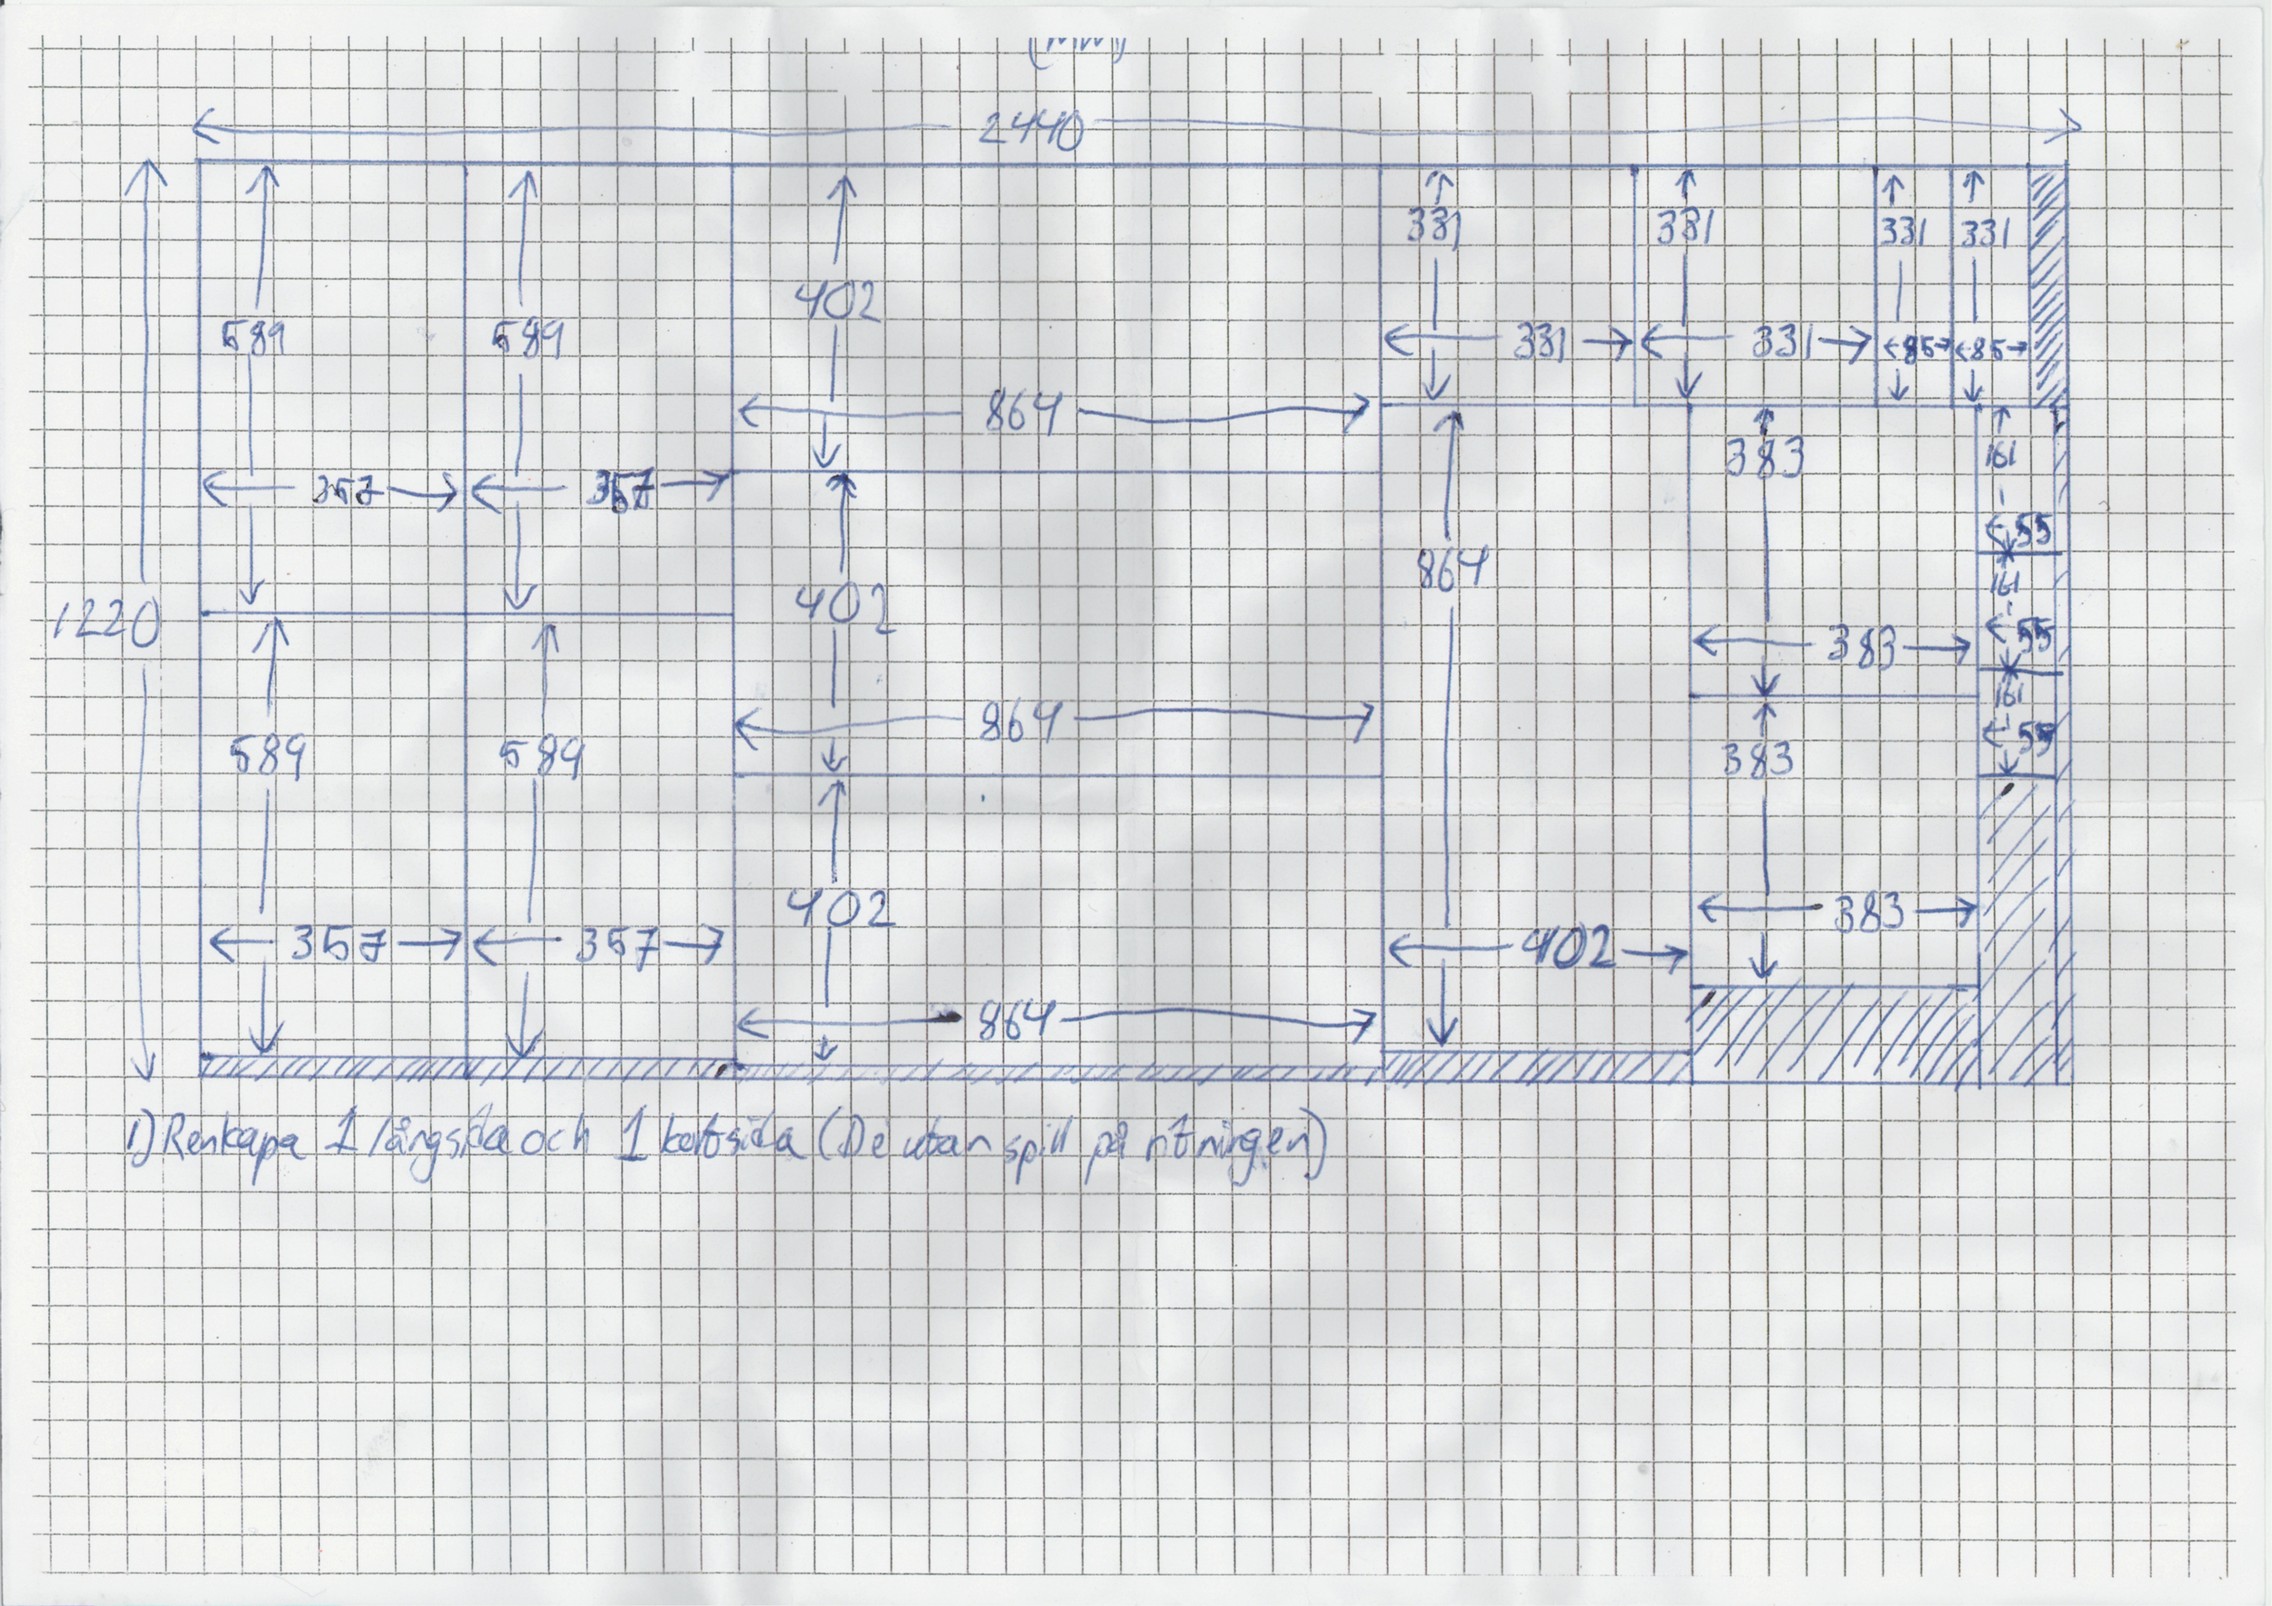 (mm)
2440
331 331 331 331
402
589 589
331 331 85 85
864
383 161
357 357
55
864
402 161
1220
383 55
161
864
589 589 383 55
402
383
357 357 402
864
1) Renkapa 1 långsida och 1 kortsida (De utan spill på ritningen)